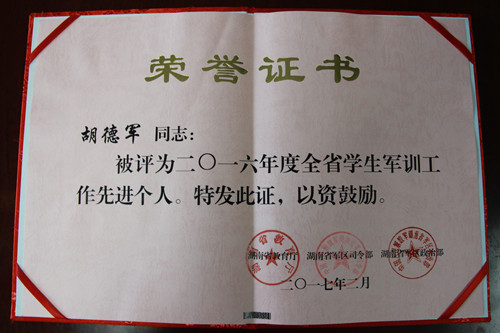 荣誉证书
胡德军 同志：
被评为二〇一六年度全省学生军训工
作先进个人。特发此证，以资鼓励。
湖南省教育厅 湖南省军区司令部 湖南省军区政治部
二〇一七年二月